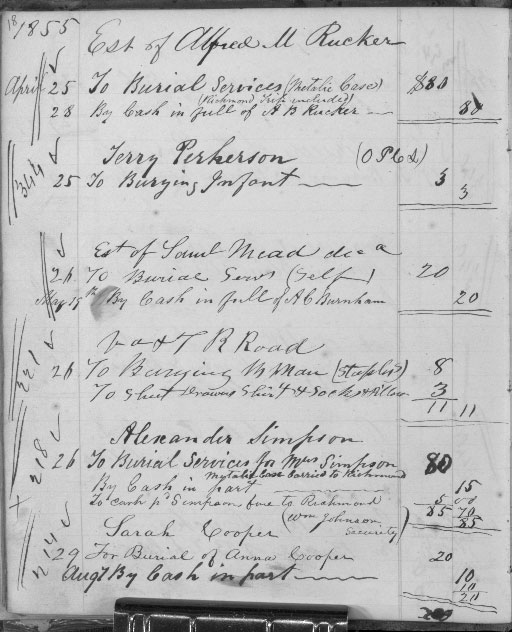 18 1855
Est of Alfred M Rucker
April 25 To Burial Services (Metalic Case) $80
(Richmond Trip included)
28 By Cash in full of A B Rucker 80
344 Terry Perkerson (O P & d)
25 To Burying Infant 3
3
Est of Saml Mead dec d
26 To Burial Servs (Self) 20
May 19th By Cash in full of A C Burnham 20
221 Va & T R Road
26 To Burying 1 Man (Staples) 8
To Sheet Drawers Shirt & Socks & Pillow 3
11 11
218 Alexander Simpson
26 To Burial Services for Mrs Simpson 80
Metalic Case Carried to Richmond
By Cash in part 15
To cash pd Simpson fare to Richmond 5 00
85 70
(Wm Johnson 85
Security)
214 Sarah Cooper
29 For Burial of Anna Cooper 20
Aug 7 By Cash in part 10
10
20